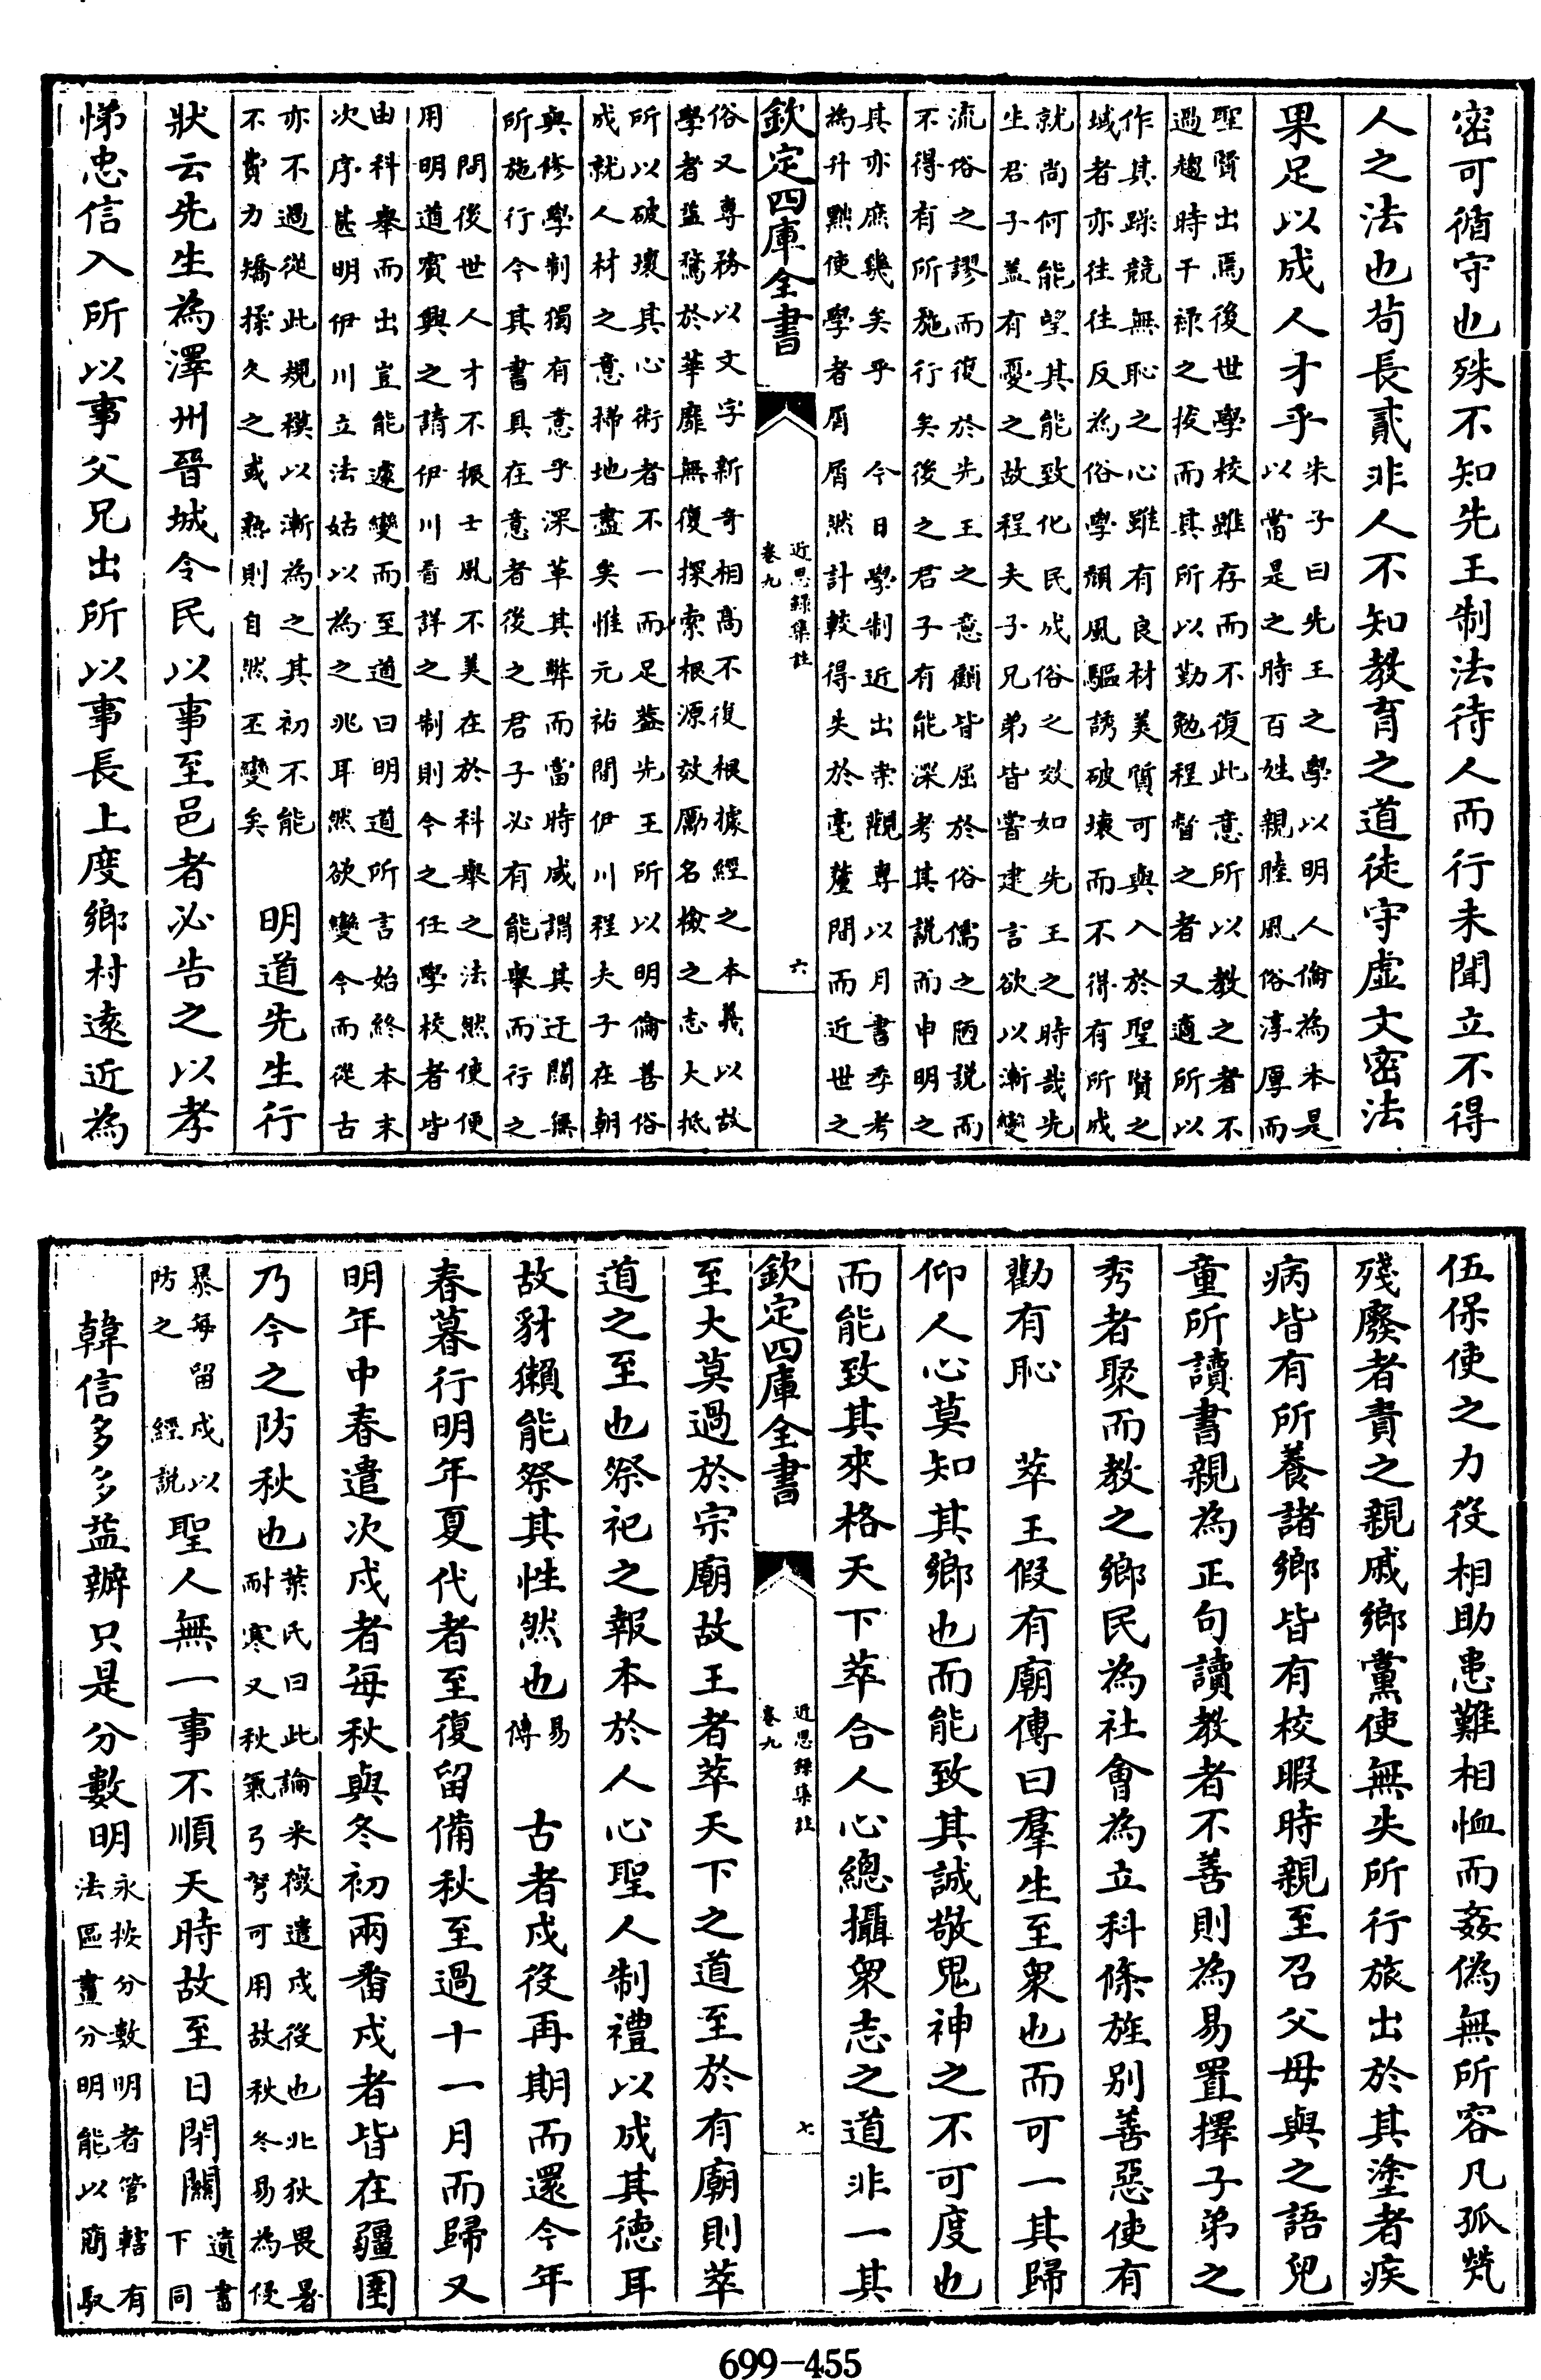 密可循守也殊不知先王制法待人而行未聞立不得
人之法也苟長貳非人不知教育之道徒守虛文密法
果足以成人才乎
朱子曰先王之學以明人倫為本是
以當是之時百姓親睦風俗淳厚而
聖賢出焉後世學校雖存而不復此意所以教之者不
過趨時干祿之技而其所以勤勉程督之者又適所以
作其躁競無恥之心雖有良材美質可與入於聖賢之
域者亦往往反為俗學頹風驅誘破壞而不得有所成
就尚何能望其能致化民成俗之效如先王之時哉先
生君子葢有憂之故程夫子兄弟皆嘗建言欲以漸變
流俗之謬而復於先王之意顧皆屈於俗儒之陋說而
不得有所施行矣後之君子有能深考其說而申明之
其亦庶幾矣乎　今日學制近出崇觀專以月書季考
為升黜使學者屑屑然計較得失於毫釐間而近世之
欽定四庫全書
近思錄集註
卷九
六
俗又專務以文字新奇相高不復根據經之本義以故
學者益騖於華靡無復探索根源效勵名檢之志大抵
所以破壞其心術者不一而足葢先王所以明倫善俗
成就人材之意掃地盡矣惟元祐間伊川程夫子在朝
與修學制獨有意乎深革其弊而當時咸謂其迂闊無
所施行今其書具在意者後之君子必有能舉而行之
問後世人才不振士風不美在於科舉之法然使便
用明道賓興之請伊川看詳之制則今之任學校者皆
由科舉而出豈能遽變而至道曰明道所言始終本末
次序甚明伊川立法姑以為之兆耳然欲變今而從古
亦不過從此規模以漸為之其初不能
不費力矯揉久之或熟則自然丕變矣
明道先生行
狀云先生為澤州晉城令民以事至邑者必告之以孝
悌忠信入所以事父兄出所以事長上度鄉村遠近為
伍保使之力役相助患難相恤而姦偽無所容凡孤煢
殘廢者責之親戚鄉黨使無失所行旅出於其塗者疾
病皆有所養諸鄉皆有校暇時親至召父母與之語兒
童所讀書親為正句讀教者不善則為易置擇子弟之
秀者聚而教之鄉民為社會為立科條旌別善惡使有
勸有恥　萃王假有廟傳曰羣生至衆也而可一其歸
仰人心莫知其鄉也而能致其誠敬鬼神之不可度也
而能致其來格天下萃合人心總攝衆志之道非一其
欽定四庫全書
近思錄集註
卷九
七
至大莫過於宗廟故王者萃天下之道至於有廟則萃
道之至也祭祀之報本於人心聖人制禮以成其德耳
故豺獺能祭其性然也
易
傳
古者戍役再期而還今年
春暮行明年夏代者至復留備秋至過十一月而歸又
明年中春遣次戍者每秋與冬初兩番戍者皆在疆圉
乃今之防秋也
葉氏曰此論采薇遣戍役也北狄畏暑
耐寒又秋氣弓弩可用故秋冬易為侵
暴每留戍以
防之　經說
聖人無一事不順天時故至日閉關
遺書
下同
韓信多多益辦只是分數明
永按分數明者管轄有
法區畫分明能以簡馭
699-455